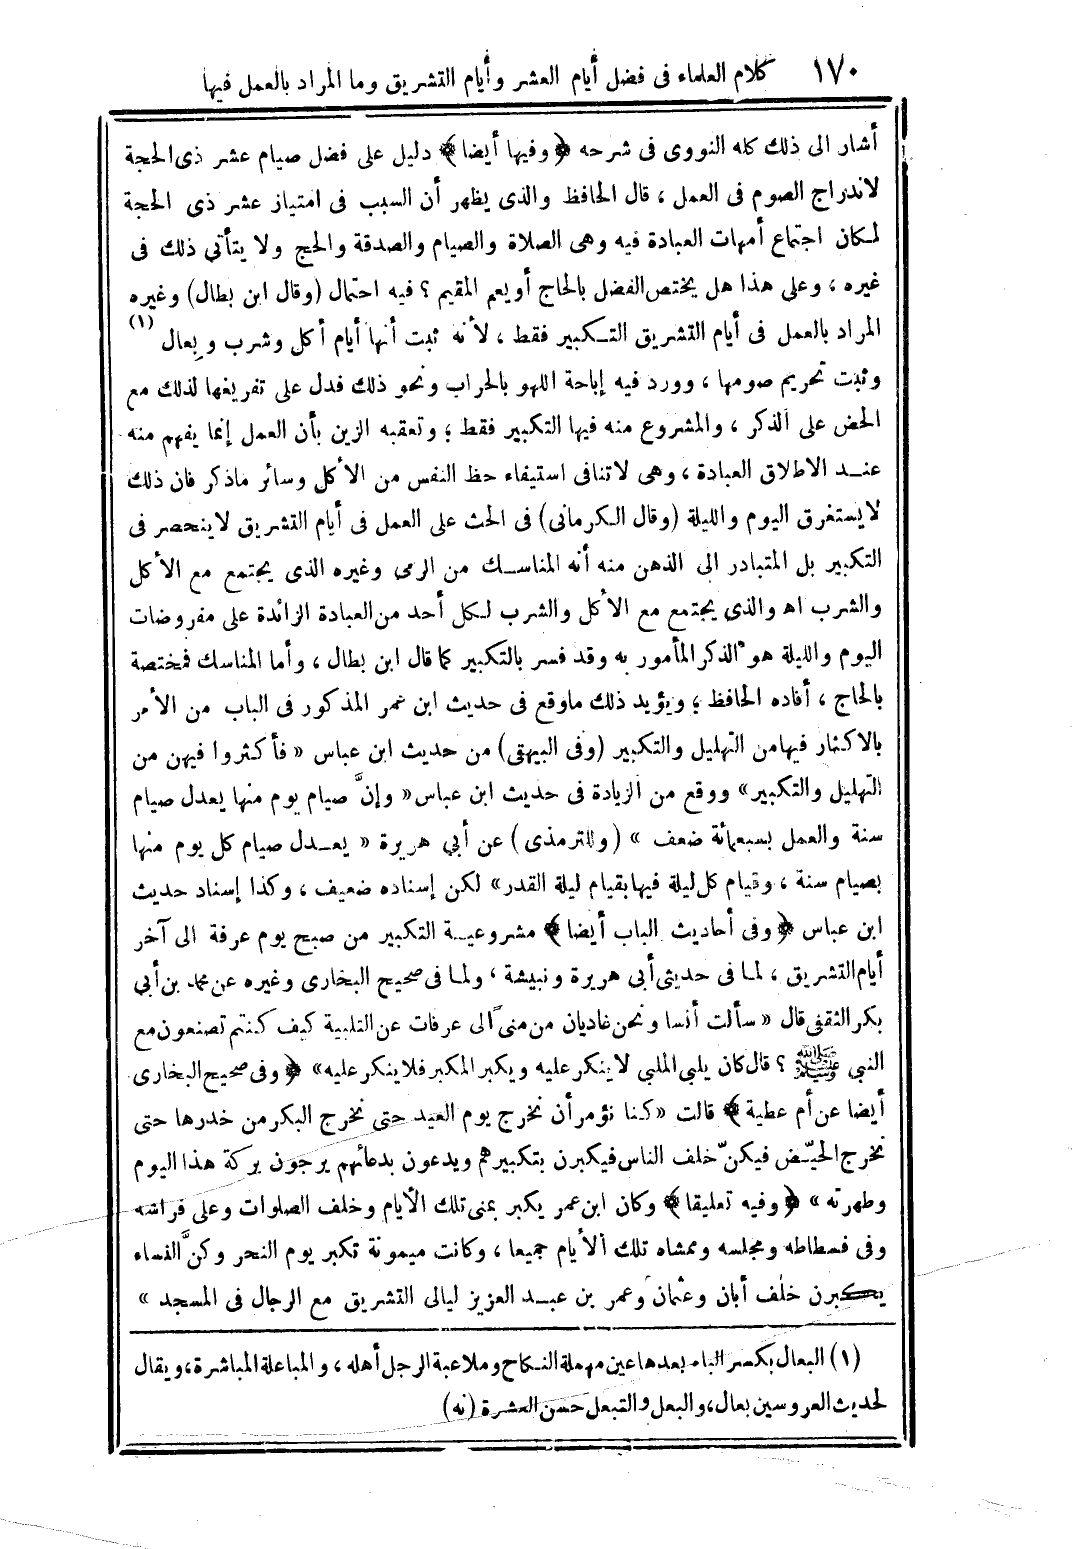 ١٧٠ كلام العلماء فى فضل أيام العشر وأيام التشريق وما المراد بالعمل فيها
أشار الى ذلك كله النووى فى شرحه ﴿وفيها أيضا﴾ دليل على فضل صيام عشر ذى الحجة
لاندراج الصوم فى العمل ، قال الحافظ والذى يظهر أن السبب فى امتياز عشر ذى الحجة
لمكان اجتماع أمهات العبادة فيه وهى الصلاة والصيام والصدقة والحج ولا يتأتي ذلك فى
غيره ، وعلى هذا هل يختص الفضل بالحاج أو يعم المقيم ؟ فيه احتمال (وقال ابن بطال) وغيره
المراد بالعمل فى أيام التشريق التكبير فقط ، لأنه ثبت أنها أيام أكل وشرب وبِعال (١)
وثبت تحريم صومها ، وورد فيه إباحة اللهو بالحراب ونحو ذلك فدل على تفريغها لذلك مع
الحض على الذكر ، والمشروع منه فيها التكبير فقط ؛ وتعقبه الزين بأن العمل إنما يفهم منه
عند الاطلاق العبادة ، وهى لاتنافى استيفاء حظ النفس من الأكل وسائر ماذكر فان ذلك
لايستغرق اليوم والليلة (وقال الكرمانى) فى الحث على العمل فى أيام التشريق لاينحصر فى
التكبير بل المتبادر الى الذهن منه أنه المناسك من الرمى وغيره الذى يجتمع مع الأكل
والشرب اه والذي يجتمع مع الأكل والشرب لكل أحد من العبادة الزائدة على مفروضات
اليوم والليلة هو الذكر المأمور به وقد فسر بالتكبير كما قال ابن بطال ، وأما المناسك فمختصة
بالحاج ، أفاده الحافظ ؛ ويؤيد ذلك ماوقع فى حديث ابن عمر المذكور فى الباب من الأمر
بالاكثار فيها من التهليل والتكبير (وفى البيهقى) من حديث ابن عباس « فأكثروا فيهن من
التهليل والتكبير» ووقع من الزيادة فى حديث ابن عباس« وإنَّ صيام يوم منها يعدل صيام
سنة والعمل بسبعمائة ضعف » (وللترمذى) عن أبي هريرة « يعدل صيام كل يوم منها
بصيام سنة ، وقيام كل ليلة فيها بقيام ليلة القدر» لكن إسناده ضعيف ، وكذا إسناد حديث
ابن عباس ﴿وفى أحاديث الباب أيضا﴾ مشروعية التكبير من صبح يوم عرفة الى آخر
أيام التشريق ، لما فى حديثى أبى هريرة ونبيشة ، ولما فى صحيح البخارى وغيره عن محمد بن أبي
بكر الثقفى قال « سألت أنسا ونحن غاديان من منىً الى عرفات عن التلبية كيف كنتم تصنعون مع
النبي ﷺ ؟ قال كان يلبى الملبى لا ينكر عليه ويكبر المكبر فلا ينكر عليه» ﴿وفى صحيح البخارى
أيضا عن أم عطية﴾ قالت «كنا نؤمر أن نخرج يوم العيد حتى نخرج البكر من خدرها حتى
نخرج الحيّض فيكنّ خلف الناس فيكبرن بتكبيرهم ويدعون بدعائهم يرجون بركة هذا اليوم
وطهرته » ﴿وفيه تعليقا﴾ وكان ابن عمر يكبر بمنى تلك الأيام وخلف الصلوات وعلى فراشه
وفى فسطاطه ومجلسه وممشاه تلك الأيام جميعا ، وكانت ميمونة تكبر يوم النحر وكنَّ النساء
يكبرن خلف أبان وعثمان وعمر بن عبد العزيز ليالى التشريق مع الرجال فى المسجد »
(١) البعال بكسر الباء بعدها عين مهملة النكاح وملاعبة الرجل أهله ، والمباعلة المباشرة، ويقال
لحديث العروسين بعال، والبعل والتبعل حسن العشرة (نه)